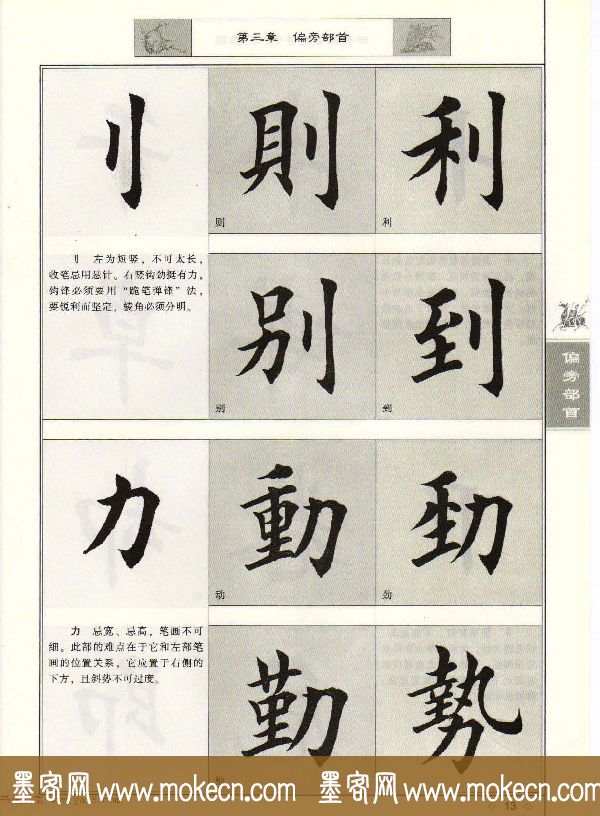 第三章 偏旁部首
刂 則 利
则 利
刂 左为短竖，不可太长，
收笔忌用悬针。右竖钩劲挺有力，
钩锋必须要用“跪笔弹锋”法，
要锐利而坚定，棱角必须分明。
别 到
别 到
偏旁部首
力 動 勁
动 劲
力 忌宽、忌高，笔画不可
细。此部的难点在于它和左部笔
画的位置关系，它应置于右侧的
下方，且斜势不可过度。
勤 勢
墨客网 www.mokecn.com 墨客网 www.mokecn.com
13